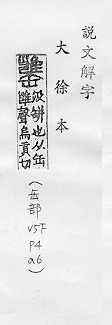 說文解字
大徐本
罋
汲缾也从缶
雝聲烏貢切
(缶部 v5F p4 a6)